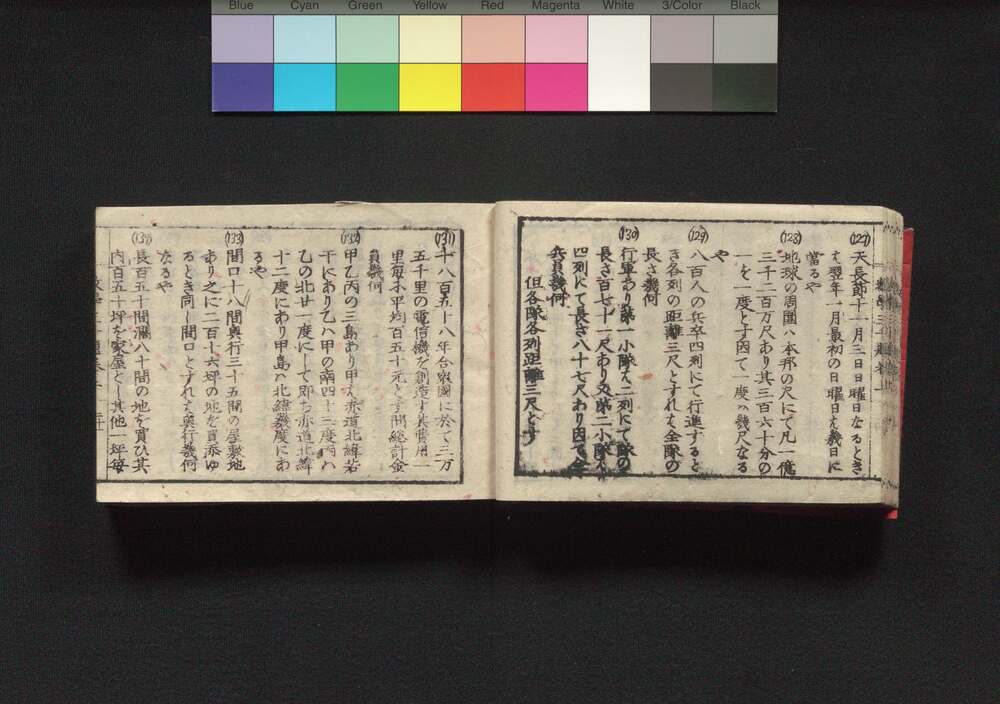 Blue Cyan Green Yellow Red Magenta White 3/Color Black
(127)
天長節十一月三日日曜日なるとき
は翌年一月最初の日曜日は幾日に
當るや
(128)
地球の周圍ハ本邦の尺にて凡一億
三千二百万尺あり其三百六十分の
一を一度とす因て一度ハ幾尺なる
や
(129)
八百人の兵卒四列にて行進すると
き各列の距離三尺とすれは全隊の
長さ幾何
(130)
行軍あり第一小隊は二列にて隊の
長さ百七十一尺あり又第二小隊ハ
四列にて長さ八十七尺あり因て全
兵員幾何
但各隊各列距離三尺とす
(131)
千八百五十八年合衆國に於て三万
五千里の電信機を創造す其費用一
里毎不平均百五十元とす問總計金
員幾何
(132)
甲乙丙の三島あり甲は赤道北緯若
干にあり乙ハ甲の南四十三度丙ハ
乙の北廿一度にして即ち赤道北緯
十二度にあり甲島ハ北緯幾度にあ
るや
(133)
間口十八間奥行三十五間の屋敷地
あり之に二百十六坪の地を買添ゆ
るとき同し間口とすれは奥行幾何
なるや
長百五十間濶八十間の地を買ひ其
内百五十坪を家屋とし其他一坪毎